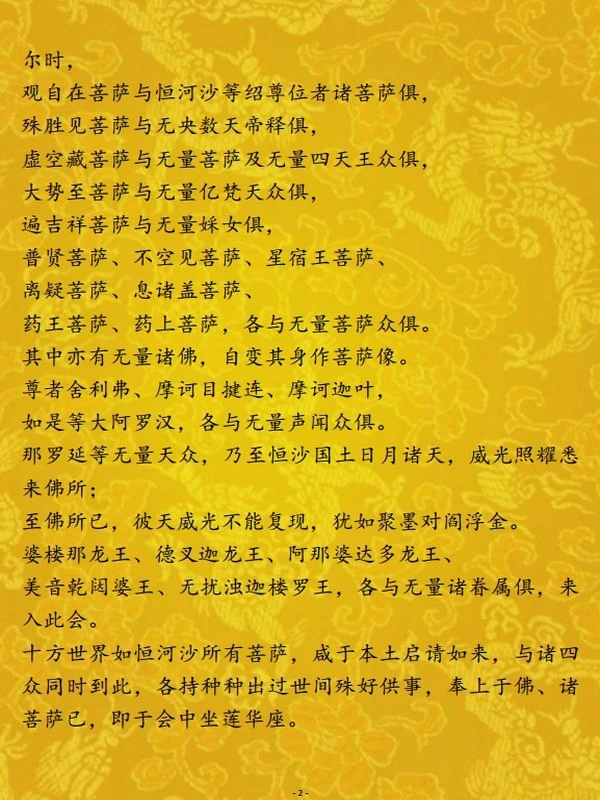 尔时，
观自在菩萨与恒河沙等绍尊位者诸菩萨俱，
殊胜见菩萨与无央数天帝释俱，
虚空藏菩萨与无量菩萨及无量四天王众俱，
大势至菩萨与无量亿梵天众俱，
遍吉祥菩萨与无量婇女俱，
普贤菩萨、不空见菩萨、星宿王菩萨、
离疑菩萨、息诸盖菩萨、
药王菩萨、药上菩萨，各与无量菩萨众俱。
其中亦有无量诸佛，自变其身作菩萨像。
尊者舍利弗、摩诃目揵连、摩诃迦叶，
如是等大阿罗汉，各与无量声闻众俱。
那罗延等无量天众，乃至恒沙国土日月诸天，威光照耀悉
来佛所；
至佛所已，彼天威光不能复现，犹如聚墨对阎浮金。
婆楼那龙王、德叉迦龙王、阿那婆达多龙王、
美音乾闼婆王、无扰浊迦楼罗王，各与无量诸眷属俱，来
入此会。
十方世界如恒河沙所有菩萨，咸于本土启请如来，与诸四
众同时到此，各持种种出过世间殊好供事，奉上于佛、诸
菩萨已，即于会中坐莲华座。
- 2 -